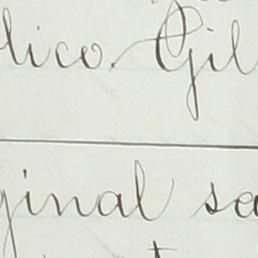 lico. Gil
ginal sa